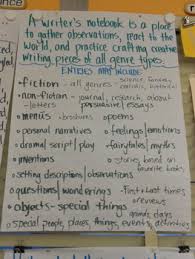 A writer's notebook is a place
to gather observations, react to the
world, and practice crafting creative
writing pieces of all genre types.
ENTRIES MAY INCLUDE:
• fiction - all genres - science, fantasy,
realistic, historical
• non-fiction - journal, research, about
- letters persuasive essays
• menus • brochures • poems
• personal narratives • feelings/emotions
• drama/script/play • fairytales/myths
• inventions • stories based on
favorite books
• setting descriptions/observations
• questions/wonderings • first + last times
• objects - special things • reviews
• special people, places, things, events, activities